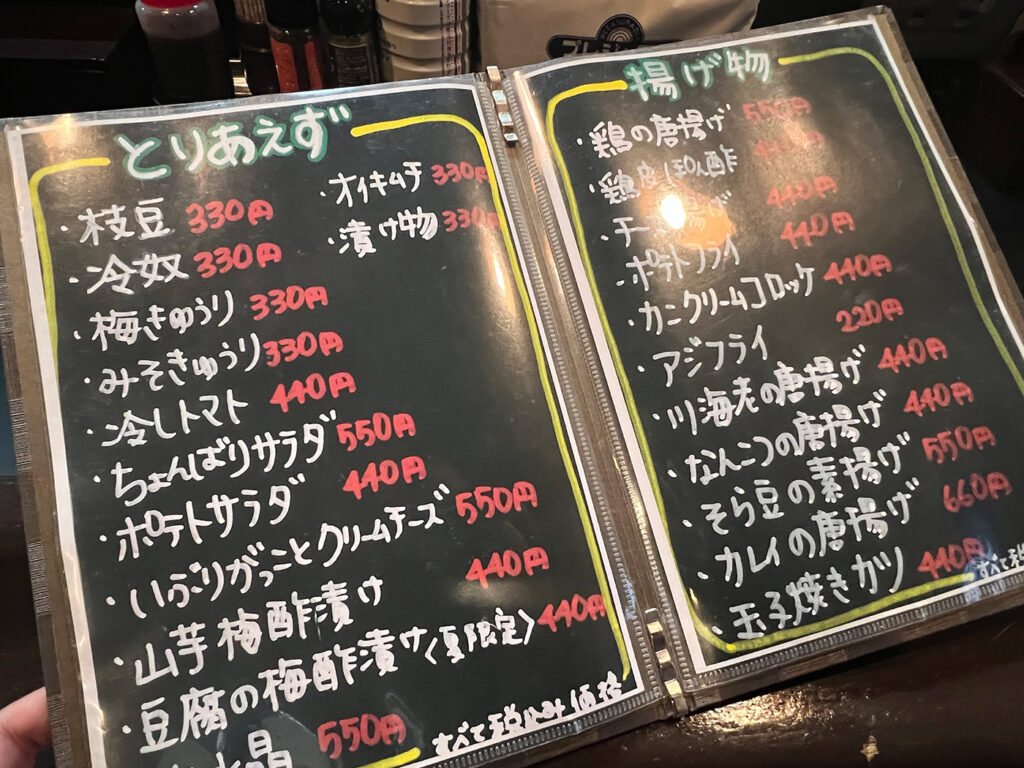 とりあえず
・枝豆 330円
・冷奴 330円
・梅きゅうり 330円
・みそきゅうり 330円
・冷しトマト 440円
・ちょんばりサラダ 550円
・ポテトサラダ 440円
・いぶりがっことクリームチーズ 550円
・山芋梅酢漬け 440円
・豆腐の梅酢漬け〈夏限定〉 440円
水晶 550円
・オイキムチ 330円
・漬け物 330円
すべて税込み価格
揚げ物
・鶏の唐揚げ 550円
・鶏皮ぽん酢
440円
・ポテトフライ 440円
・カニクリームコロッケ 440円
・アジフライ 220円
・川海老の唐揚げ 440円
・なんこつの唐揚げ 440円
・そら豆の素揚げ 550円
・カレイの唐揚げ 660円
・玉子焼きカツ 440円
すべて税